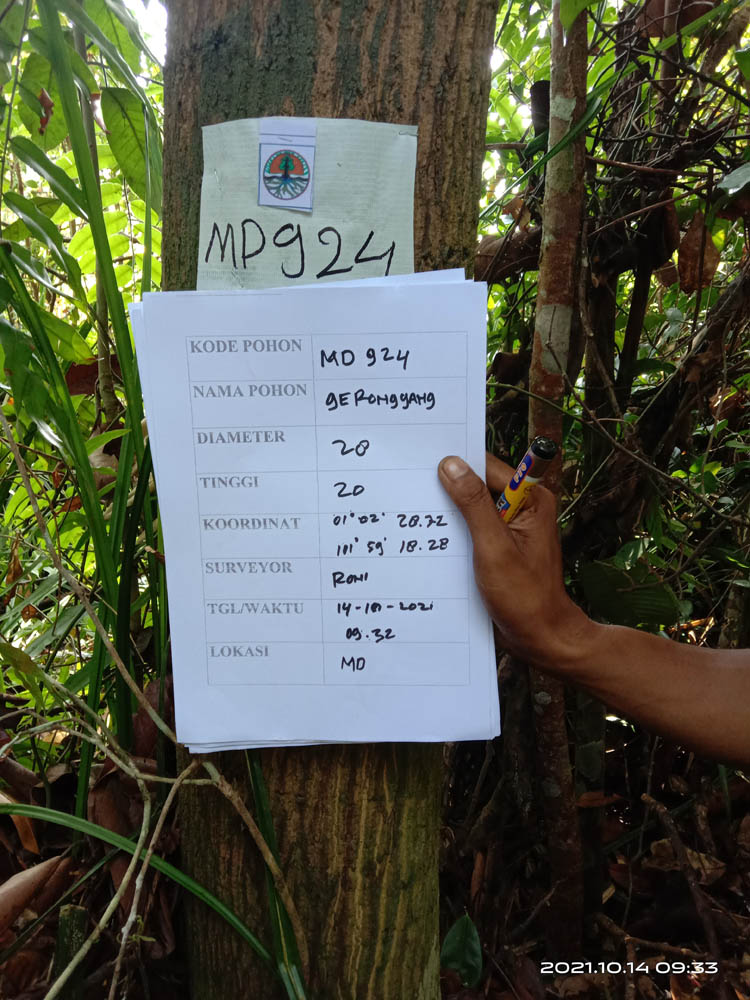 MD924
KODE POHON MD 924
NAMA POHON gERONggANg
DIAMETER 28
TINGGI 20
KOORDINAT 01° 02' 28.72
101° 59' 18.28
SURVEYOR RONI
TGL/WAKTU 14-10-2021
09.32
LOKASI MD
2021.10.14 09:33